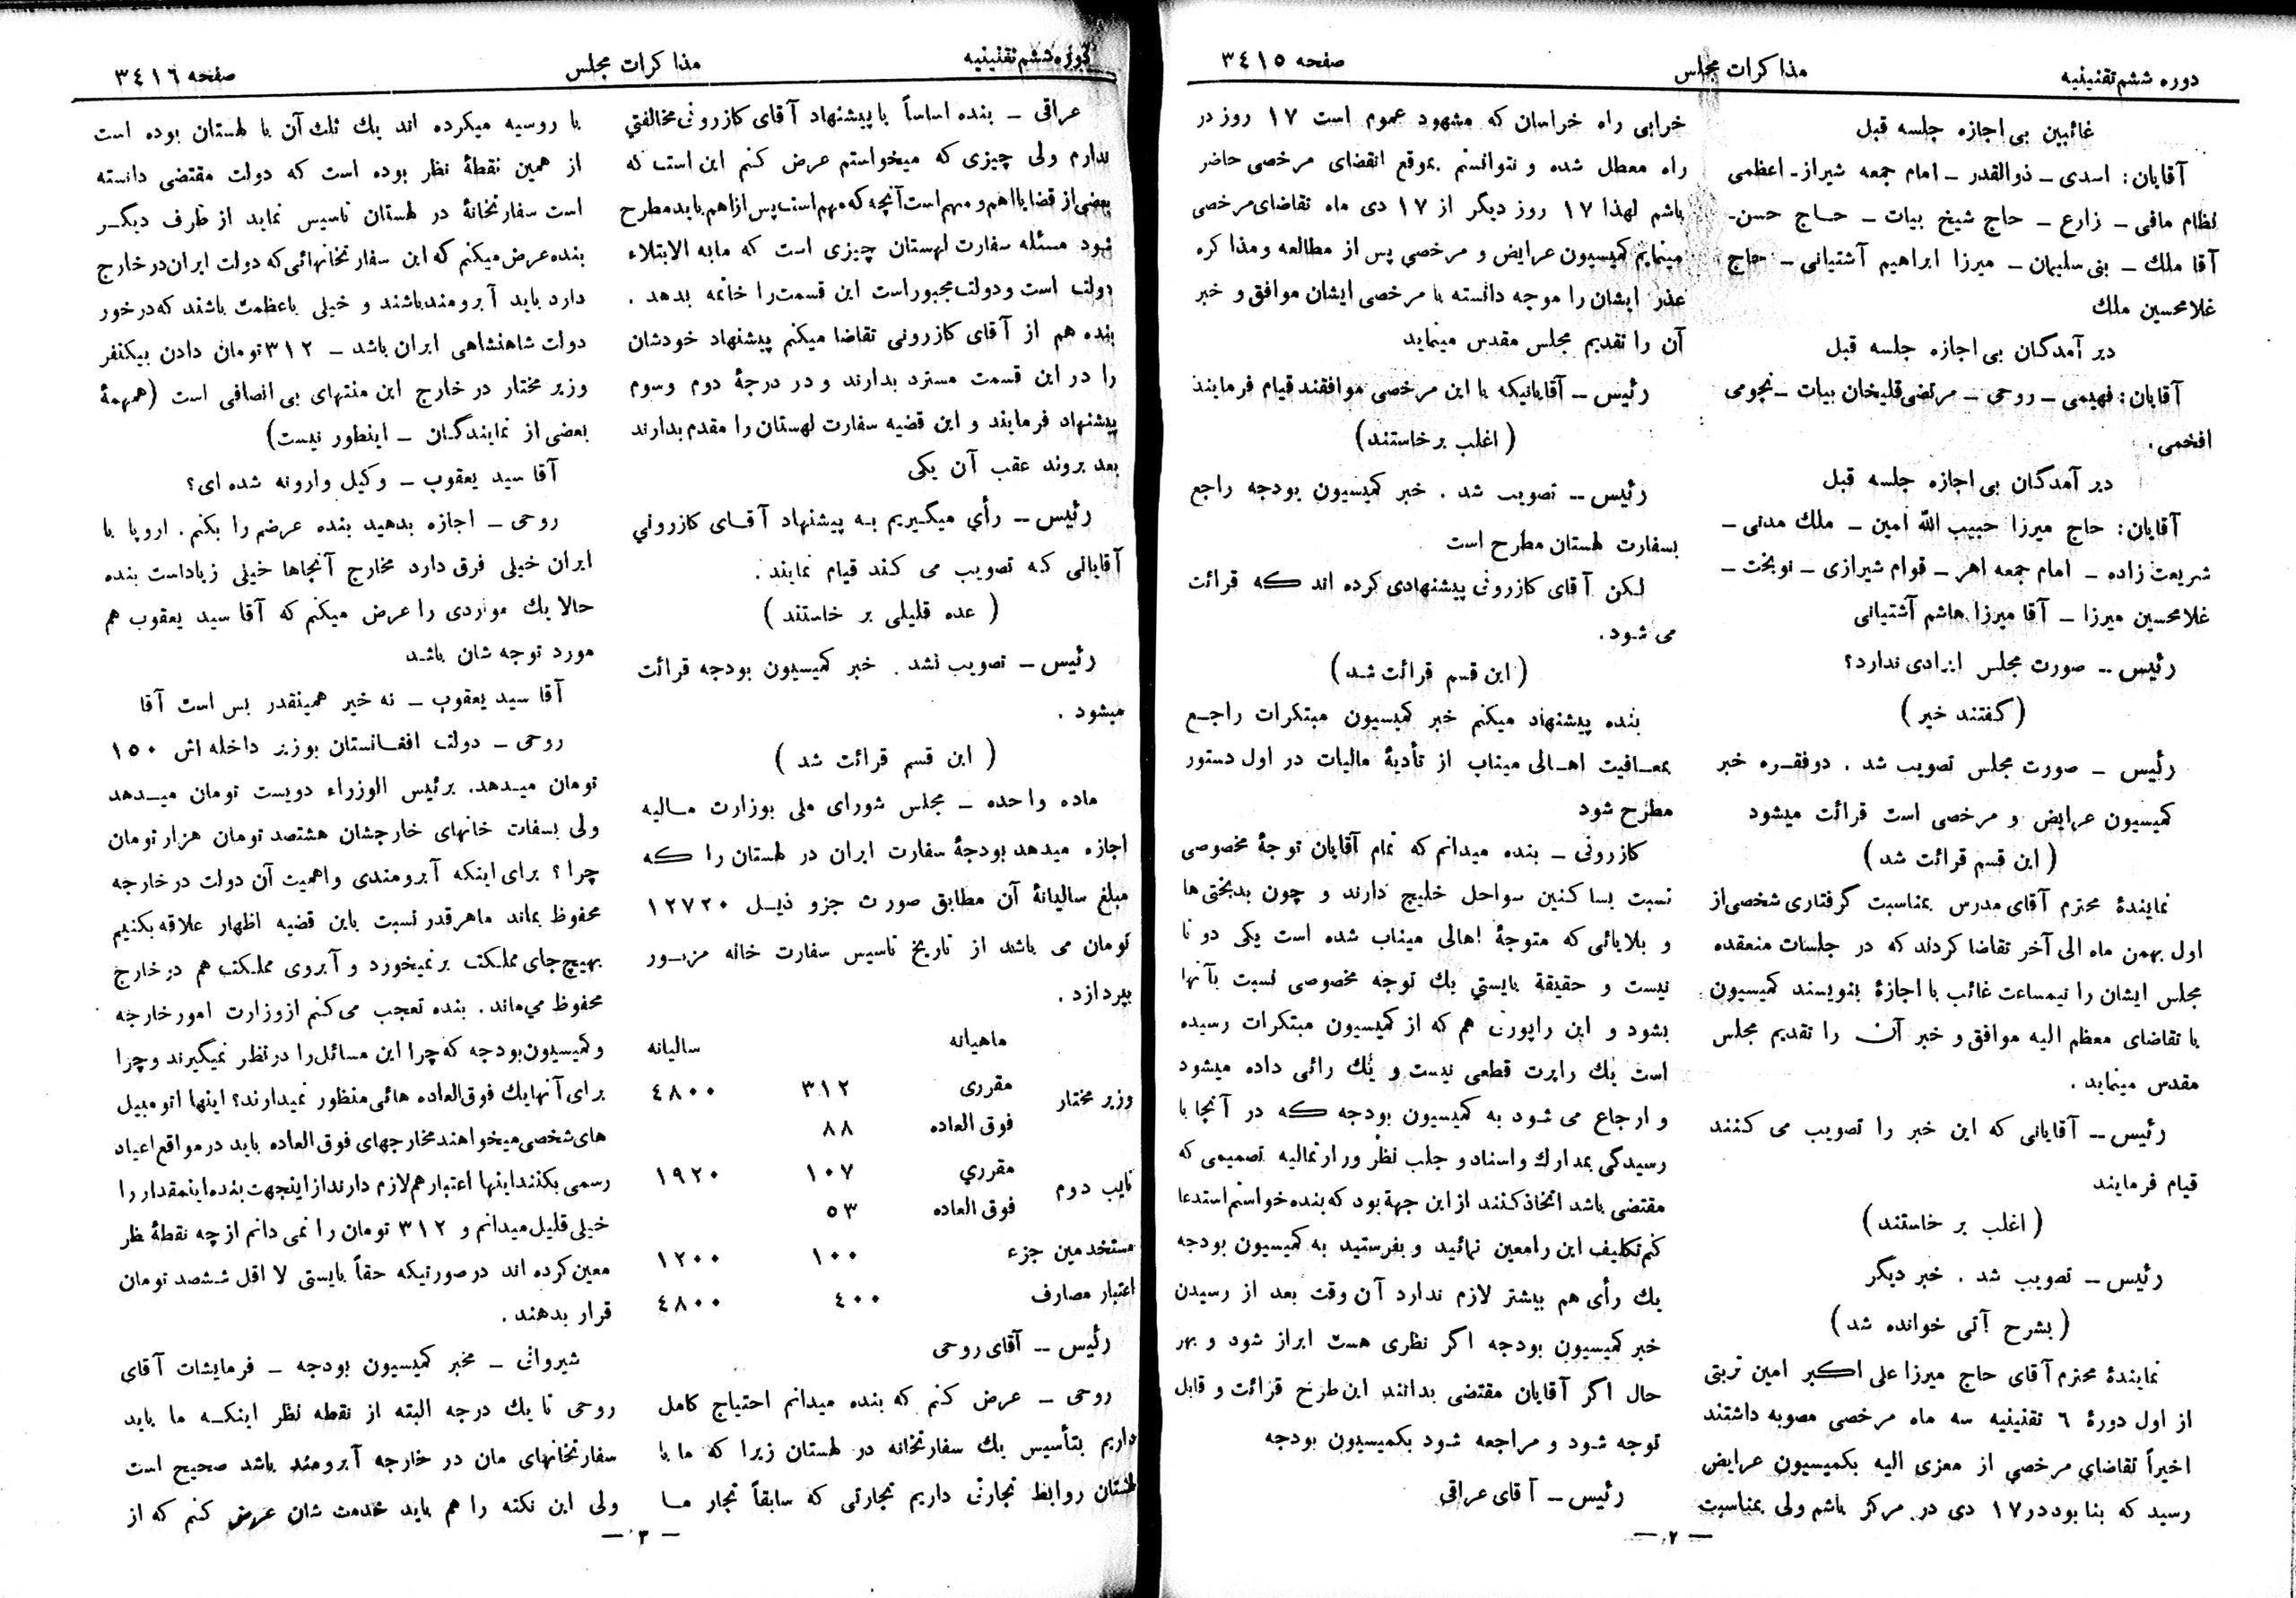 دوره ششم تقنینیه
مذاکرات مجلس
صفحه ۳۴۱۵
غائبین بی اجازه جلسه قبل
آقایان: اسدی ـ ذوالقدر ـ امام جمعه شیراز ـ اعظمی
نظام مافی ـ زارع ـ حاج شیخ بیات ـ حاج حسن ـ
آقا ملك ـ بنی سلیمان ـ میرزا ابراهیم آشتیانی ـ حاج
غلامحسین ملك
دیر آمدگان بی اجازه جلسه قبل
آقایان: فهیمی ـ روحی ـ مرتضی قلیخان بیات ـ نجومی
افخمی .
دیر آمدگان بی اجازه جلسه قبل
آقایان: حاج میرزا حبیب الله امین ـ ملك مدنی ـ
شریعت زاده ـ امام جمعه اهر ـ قوام شیرازی ـ نوبخت ـ
غلامحسین میرزا ـ آقا میرزا هاشم آشتیانی
رئیس ـ صورت مجلس ایرادی ندارد؟
(گفتند خیر)
رئیس ـ صورت مجلس تصویب شد . دوفقره خبر
کمیسیون عرایض و مرخصی است قرائت میشود
(این قسم قرائت شد)
نمایندهٔ محترم آقای مدرس بمناسبت گرفتاری شخصی از
اول بهمن ماه الی آخر تقاضا کردند که در جلسات منعقده
مجلس ایشان را نیمساعت غائب با اجازهٔ بنویسند کمیسیون
با تقاضای معظم الیه موافق و خبر آن را تقدیم مجلس
مقدس مینماید .
رئیس ـ آقایانی که این خبر را تصویب می کنند
قیام فرمایند
(اغلب بر خاستند)
رئیس ـ تصویب شد . خبر دیگر
(بشرح آتی خوانده شد)
نمایندهٔ محترم آقای حاج میرزا علی اکبر امین تربتی
از اول دورهٔ ٦ تقنینیه سه ماه مرخصی مصوبه داشتند
اخیراً تقاضاي مرخصي از معزی الیه بکمیسیون عرایض
رسید که بنا بود در ۱۷ دی در مرکز باشم ولی بمناسبت
خرابی راه خراسان که مشهود عموم است ۱۷ روز در
راه معطل شده و نتوانستم بموقع انقضای مرخصی حاضر
باشم لهذا ۱۷ روز دیگر از ۱۷ دی ماه تقاضای مرخصی
مینمایم کمیسیون عرایض و مرخصي پس از مطالعه و مذاکره
عذر ایشان را موجه دانسته با مرخصی ایشان موافق و خبر
آن را تقدیم مجلس مقدس مینماید
رئیس ـ آقایانیکه با این مرخصی موافقند قیام فرمایند
(اغلب برخاستند)
رئیس ـ تصویب شد . خبر کمیسیون بودجه راجع
بسفارت لهستان مطرح است
لکن آقای کازرونی پیشنهادی کرده اند که قرائت
می شود .
(این قسم قرائت شد)
بنده پیشنهاد میکنم خبر کمیسیون مبتکرات راجع
بمعافیت اهالی میناب از تأدیهٔ مالیات در اول دستور
مطرح شود
کازرونی ـ بنده میدانم که تمام آقایان توجهٔ مخصوصی
نسبت بساکنین سواحل خلیج دارند و چون بدبختی ها
و بلایائی که متوجهٔ اهالی میناب شده است یکی دو تا
نیست و حقیقة بایستي یك توجه مخصوصی نسبت بآنها
بشود و این راپورت هم که از کمیسیون مبتکرات رسیده
است یك راپرت قطعی نیست و یك رائی داده میشود
و ارجاع می شود به کمیسیون بودجه که در آنجا با
رسیدگی بمدارك و اسناد و جلب نظر وزارتمالیه تصمیمی که
مقتضی باشد اتخاذ کنند از این جهة بود که بنده خواستم استدعا
کنم تکلیف این را معین نمائید و بفرستید به کمیسیون بودجه
یك رأی هم بیشتر لازم ندارد آن وقت بعد از رسیدن
خبر کمیسیون بودجه اگر نظری هست ابراز شود و بهر
حال اگر آقایان مقتضی بدانند این طرح قرائت و قابل
توجه شود و مراجعه شود بکمیسیون بودجه
رئیس ـ آقای عراقی
ـ ۲ ـ
دوره ششم تقنینیه
مذاکرات مجلس
صفحه ۳۴۱٦
عراقی ـ بنده اساساً با پیشنهاد آقای کازرونی مخالفتي
ندارم ولی چیزی که میخواستم عرض کنم این است که
بعضی از قضایا اهم و مهم است آنچه که مهم است پس از اهم باید مطرح
شود مسئله سفارت لهستان چیزی است که مابه الابتلاء
دولت است و دولت مجبور است این قسمت را خاتمه بدهد .
بنده هم از آقای کازرونی تقاضا میکنم پیشنهاد خودشان
را در این قسمت مسترد بدارند و در درجهٔ دوم وسوم
پیشنهاد فرمایند و این قضیه سفارت لهستان را مقدم بدارند
بعد بروند عقب آن یکی
رئیس ـ رأي میگیریم به پیشنهاد آقای کازروني
آقایانی که تصویب می کنند قیام نمایند .
(عده قلیلی بر خاستند)
رئیس ـ تصویب نشد . خبر کمیسیون بودجه قرائت
میشود .
(این قسم قرائت شد)
ماده واحده ـ مجلس شورای ملی بوزارت مالیه
اجازه میدهد بودجهٔ سفارت ایران در لهستان را که
مبلغ سالیانهٔ آن مطابق صورت جزو ذیل ۱۲۷۲۰
تومان می باشد از تاریخ تاسیس سفارت خانه مزبور
بپردازد .
ماهیانه سالیانه
وزیر مختار مقرری ۳۱۲ ۴۸۰۰
فوق العاده ۸۸
نایب دوم مقرري ۱۰۷ ۱۹۲۰
فوق العاده ۵۳
مستخدمین جزء ۱۰۰ ۱۲۰۰
اعتبار مصارف ۴۰۰ ۴۸۰۰
رئیس ـ آقای روحی
روحی ـ عرض کنم که بنده میدانم احتیاج کامل
داریم بتأسیس یك سفارتخانه در لهستان زیرا که ما با
لهستان روابط تجارتی داریم تجارتی که سابقاً تجار ما
با روسیه میکرده اند یك ثلث آن با لهستان بوده است
از همین نقطهٔ نظر بوده است که دولت مقتضی دانسته
است سفارتخانهٔ در لهستان تاسیس نماید از طرف دیگر
بنده عرض میکنم که این سفارتخانهائی که دولت ایران در خارج
دارد باید آبرومند باشند و خیلی باعظمت باشند که در خور
دولت شاهنشاهی ایران باشد ـ ۳۱۲ تومان دادن بیکنفر
وزیر مختار در خارج این منتهای بی انصافی است (همهمهٔ
بعضی از نمایندگان ـ اینطور نیست)
آقا سید یعقوب ـ وکیل وارونه شده ای؟
روحی ـ اجازه بدهید بنده عرضم را بکنم . اروپا با
ایران خیلی فرق دارد مخارج آنجاها خیلی زیاد است بنده
حالا یك مواردی را عرض میکنم که آقا سید یعقوب هم
مورد توجه شان باشد
آقا سید یعقوب ـ نه خیر همینقدر بس است آقا
روحی ـ دولت افغانستان بوزیر داخله اش ۱۵۰
تومان میدهد. برئیس الوزراء دویست تومان میدهد
ولی بسفات خانهای خارجشان هشتصد تومان هزار تومان
چرا؟ برای اینکه آبرومندی و اهمیت آن دولت در خارجه
محفوظ بماند ماهرقدر نسبت باین قضیه اظهار علاقه بکنیم
بهیچ جای مملکت بر نمیخورد و آبروی مملکت هم در خارج
محفوظ مي ماند . بنده تعجب می کنم از وزارت امور خارجه
و کمیسیون بودجه که چرا این مسائل را در نظر نمیگیرند و چرا
برای آنها یك فوق العاده هائی منظور نمیدارند؟ اینها اتومبیل
های شخصی میخواهند مخارجهای فوق العاده باید در مواقع اعیاد
رسمی بکنند اینها اعتبار هم لازم دارند از اینجهت بنده اینمقدار را
خیلی قلیل میدانم و ۳۱۲ تومان را نمی دانم از چه نقطهٔ ظر
معین کرده اند در صورتیکه حقاً بایستی لا اقل ششصد تومان
قرار بدهند .
شیروانی ـ مخبر کمیسیون بودجه ـ فرمایشات آقای
روحی تا یك درجه البته از نقطه نظر اینکه ما باید
سفارتخانهای مان در خارجه آبرومند باشد صحیح است
ولی این نکته را هم باید خدمت شان عرض کنم که از
ـ ۳ ـ